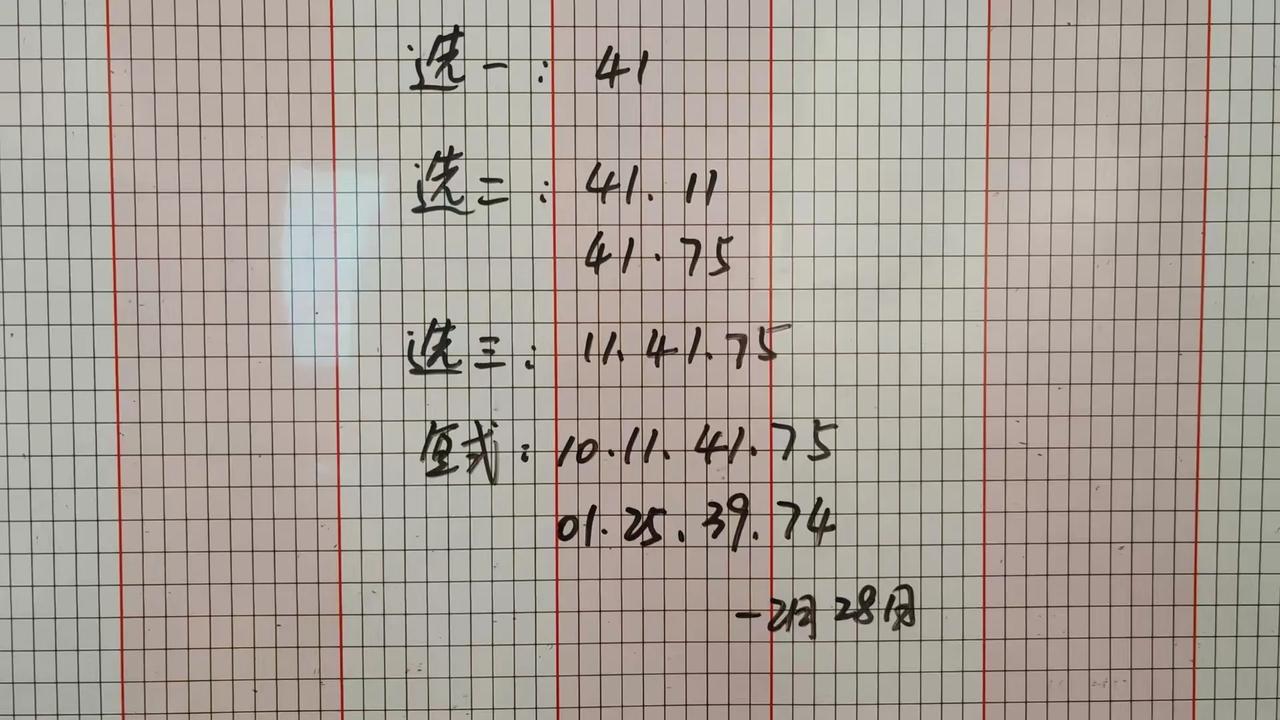 选一: 41
选二: 41. 11
41.75
选三: 11.41.75
复式: 10.11.41.75
01.25.39.74
-2月28日